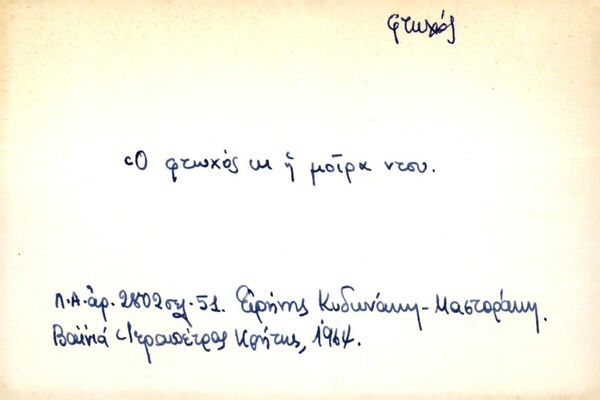 φτωχός
Ὁ φτωχός κι ἡ μοῖρα ντου.
Λ.Α. ἀρ. 2802 σελ. 51. Εἰρήνης Κυδωνάκη-Μαστοράκη.
Βαϊνιά Ἱεραπέτρας Κρήτης, 1964.